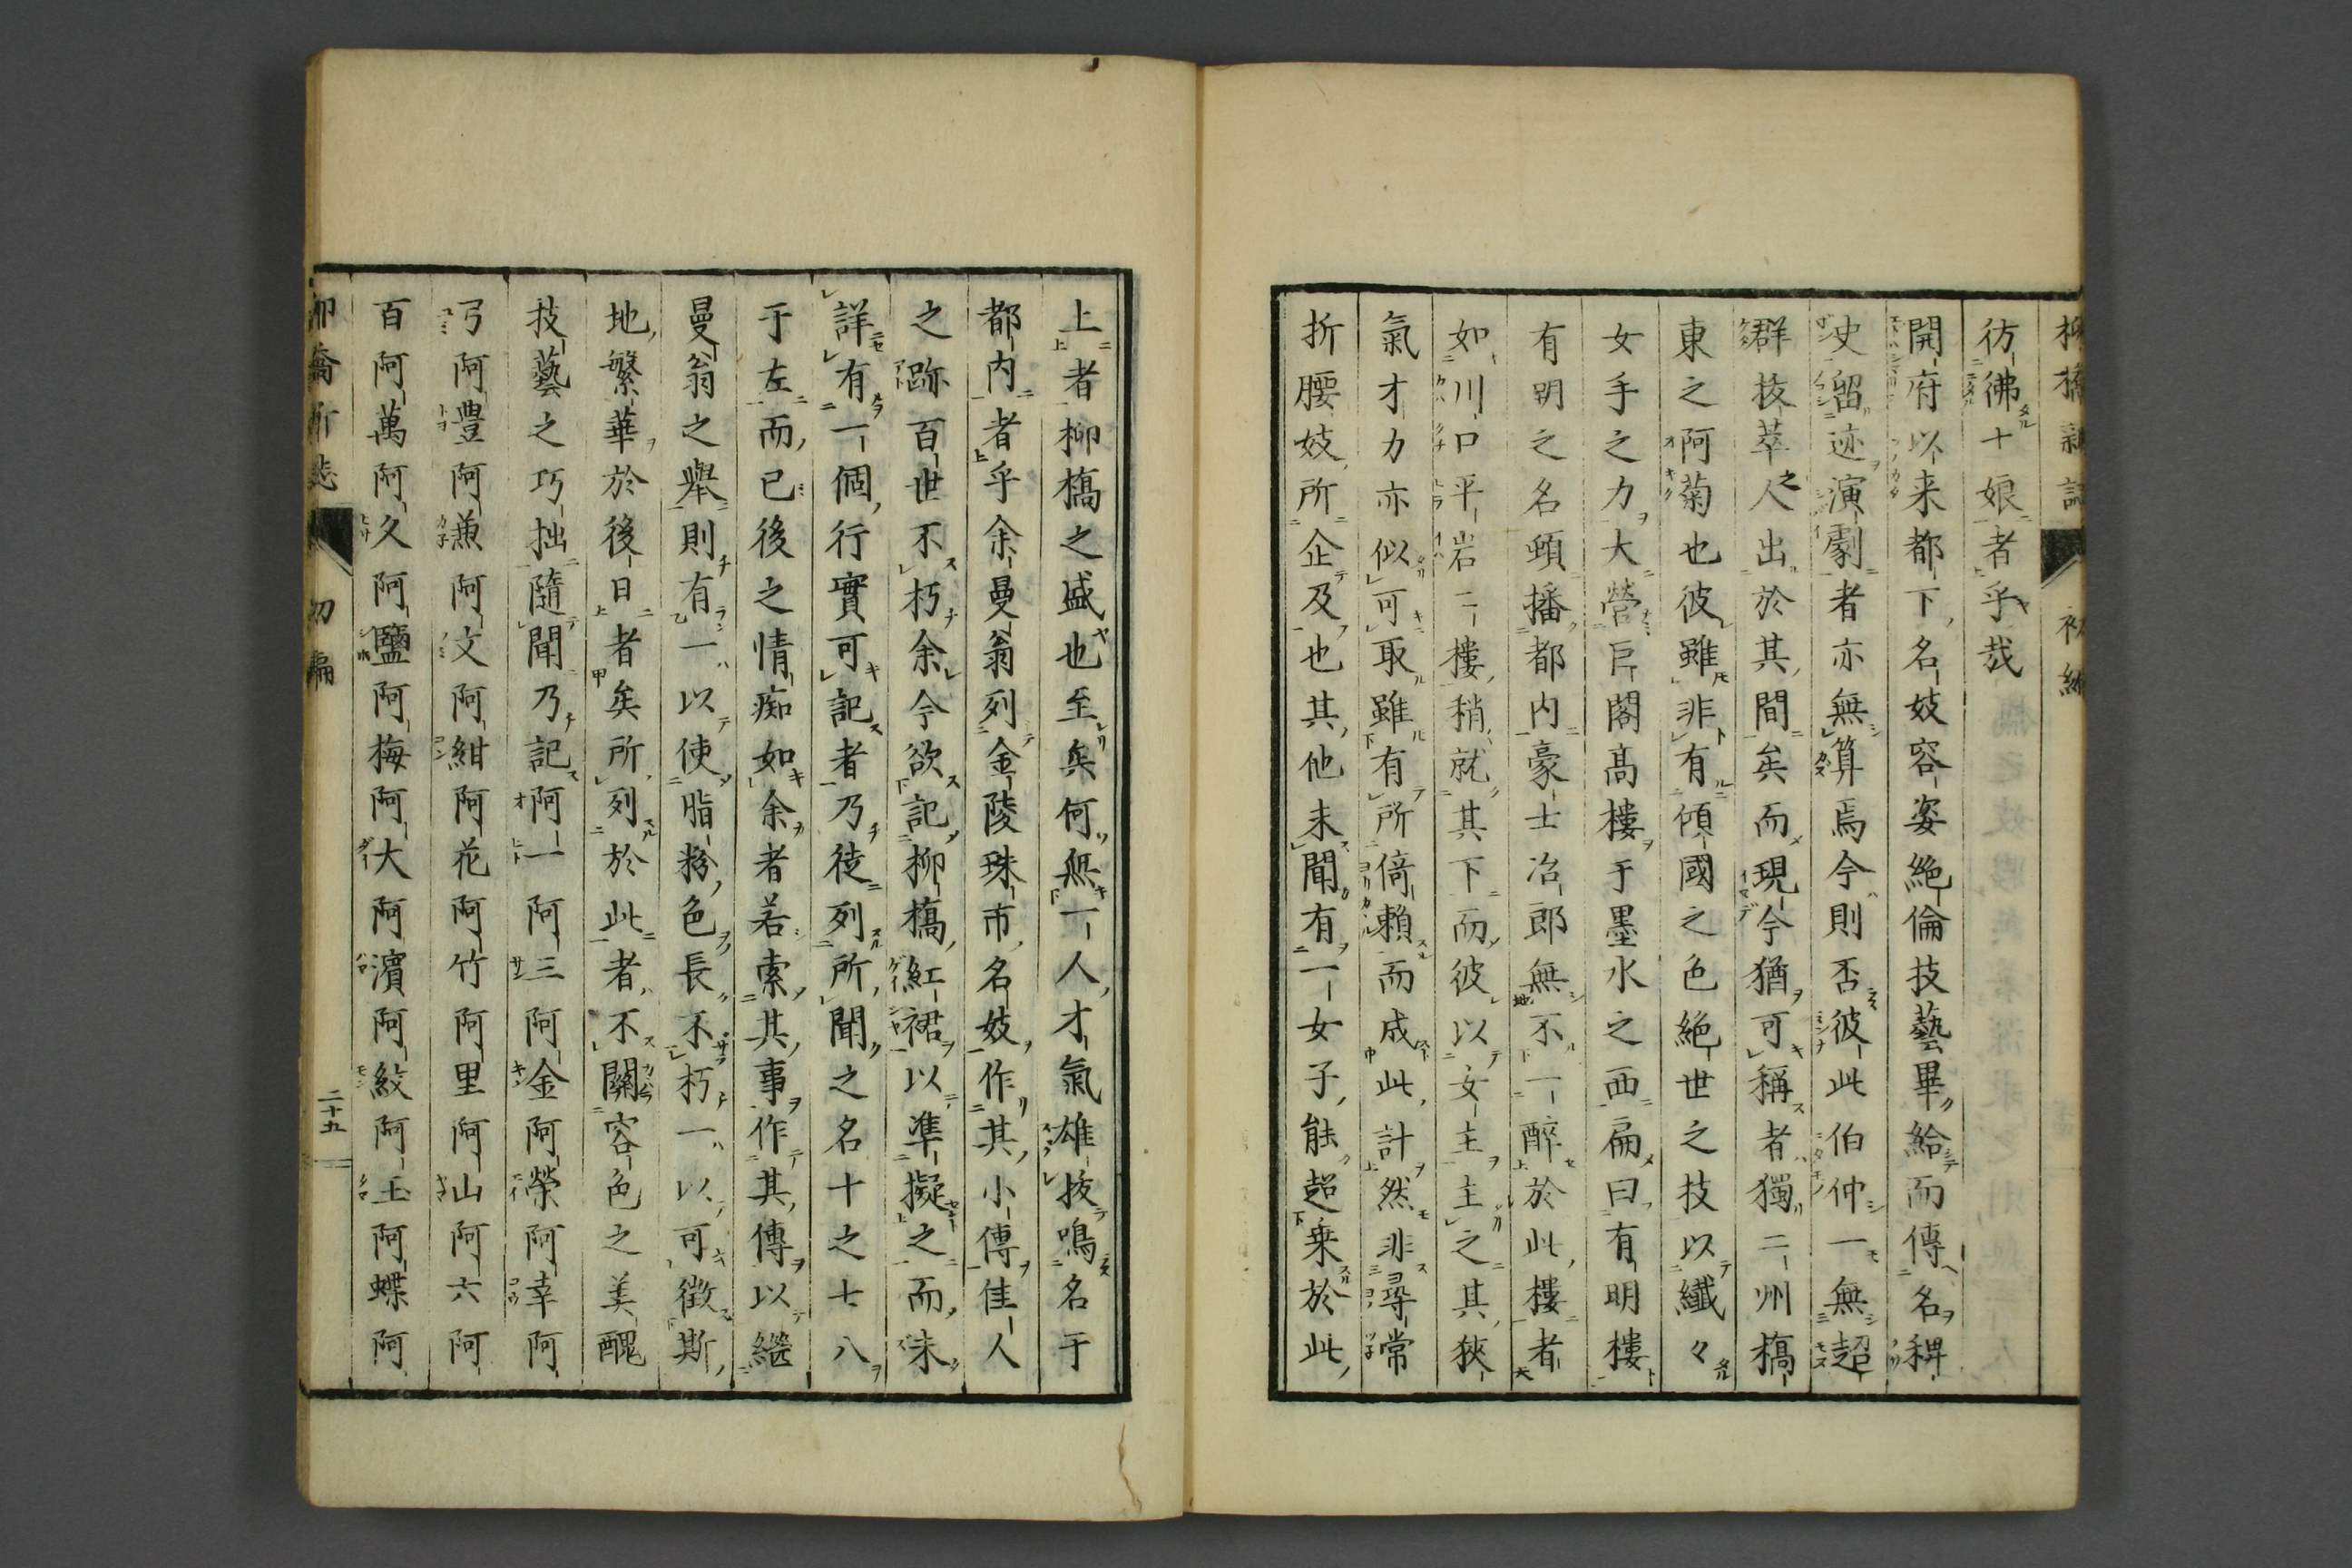 柳橋新誌 初編
彷彿十娘者乎哉
開府以来都下名妓容姿絶倫技藝畢給而傳名稗
史畄迹演劇者亦無算焉今則否彼此伯仲一無超
群抜萃之人出於其間矣而現今猶可稱者獨二州橋
東之阿菊也彼雖非有傾國之色絶世之技以纖々
女手之力大營巨閣髙樓于墨水之西扁曰有明樓
有明之名頓播都内豪士冶郎無不一醉於此樓者
如川口平岩二樓稍就其下而彼以女主主之其狹
氣才力亦似可取雖有所倚賴而成此計然非尋常
折腰妓所企及也其他未聞有一女子能超乗於此
上者柳橋之盛也至矣何無一人才氣雄抜鳴名于
都内者乎余曼翁列金陵珠市名妓作其小傳佳人
之跡百世不朽余今欲記柳橋紅裙以準擬之而未
詳有一個行實可記者乃徒列所聞之名十之七八
于左而已後之情痴如余者若索其事作其傳以繼
曼翁之舉則有一以使脂粉色長不朽一以可徴斯
地繁華於後日者矣所列於此者不關容色之美醜
技藝之巧拙隨聞乃記阿一阿三阿金阿榮阿幸阿
弓阿豊阿兼阿文阿紺阿花阿竹阿里阿山阿六阿
百阿萬阿久阿鹽阿梅阿大阿濱阿紋阿玉阿蝶阿
柳橋新誌 初編 二十五